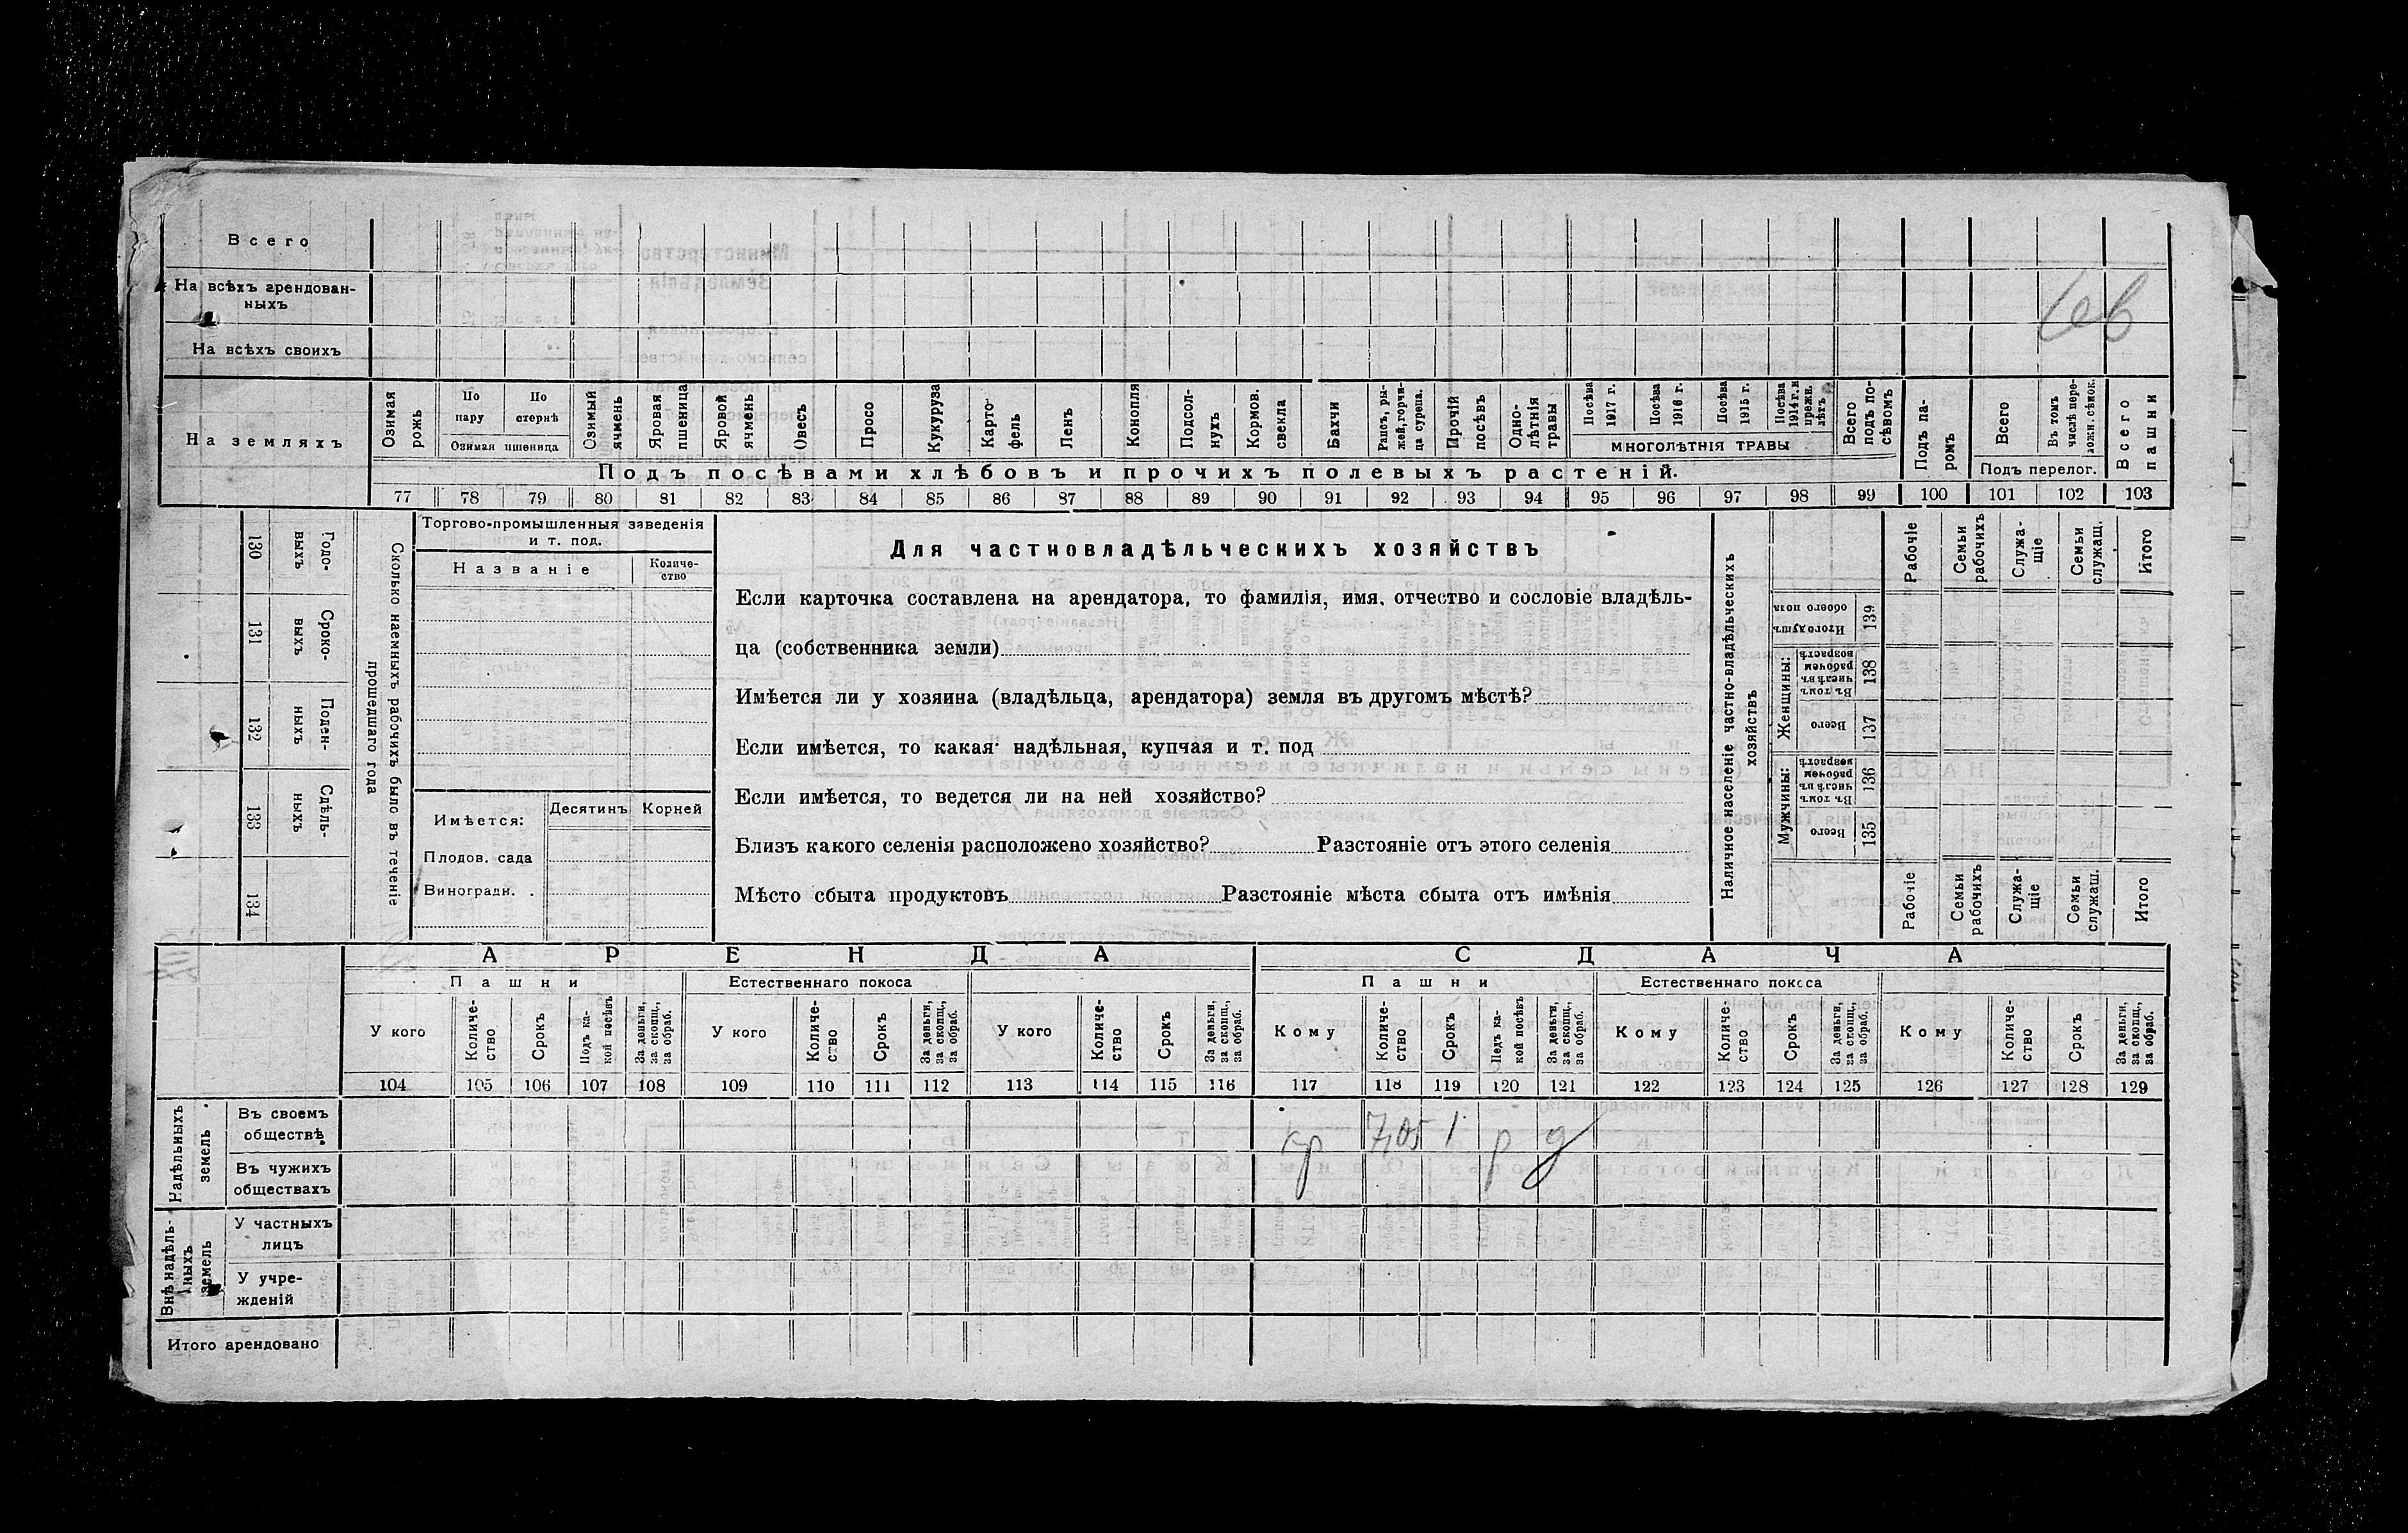 Всего
На всѣхъ арендованныхъ
На всѣхъ своихъ
На земляхъ
Озимая рожь
По пару
По стернѣ
Озимая пшеница
Озимый ячмень
Яровая пшеница
Яровой ячмень
Овесъ
Просо
Кукуруза
Картофель
Ленъ
Конопля
Подсолнухъ
Кормов. свекла
Бахчи
Рапсъ, рыжей, горчица сурепа.
Прочій посѣвъ
Однолѣтнія травы
Посѣва 1917 г.
Посѣва 1916 г.
Посѣва 1915 г.
Посѣва 1914 г. и прежн. лѣтъ
МНОГОЛѢТНІЯ ТРАВЫ
Всего подъ посѣвомъ
Подъ паромъ
Всего
Въ томъ числѣ переложн. сѣнок.
Подъ перелог.
Всего пашни
Подъ посѣвами хлѣбовъ и прочихъ полевыхъ растеній.
77 78 79 80 81 82 83 84 85 86 87 88 89 90 91 92 93 94 95 96 97 98 99 100 101 102 103
130 Годовыхъ
131 Сроковыхъ
132 Поденныхъ
133 Сдѣльныхъ
134
Сколько наемныхъ рабочихъ было въ теченіе прошедшаго года
Торгово-промышленныя заведенія и т. под.
Названіе
Количество
Имѣется:
Десятинъ
Корней
Плодов. сада
Виноградн. .
Для частновладѣльческихъ хозяйствъ
Если карточка составлена на арендатора, то фамилія, имя, отчество и сословіе владѣль-
ца (собственника земли)
Имѣется ли у хозяина (владѣльца, арендатора) земля въ другомъ мѣстѣ?
Если имѣется, то какая: надѣльная, купчая и т. под
Если имѣется, то ведется ли на ней хозяйство?
Близъ какого селенія расположено хозяйство? Разстояніе отъ этого селенія
Мѣсто сбыта продуктовъ Разстояніе мѣста сбыта отъ имѣнія
Наличное населеніе частно-владѣльческихъ хозяйствъ
Рабочіе
Семьи рабочихъ
Служащіе
Семьи служащ.
Итого
Итого душъ обоего пола 139
Женщины:
Въ томъ числѣ въ рабочемъ возрастѣ 138
Всего 137
Мужчины:
Въ томъ числѣ въ рабочемъ возрастѣ 136
Всего 135
Рабочіе
Семьи рабочихъ
Служащіе
Семьи служащ.
Итого
АРЕНДА
СДАЧА
Пашни
Естественнаго покоса
Пашни
Естественнаго покоса
У кого
Количество
Срокъ
Подъ какой посѣвъ
За деньги, за скопщ., за обраб.
У кого
Количество
Срокъ
За деньги, за скопщ., за обраб.
У кого
Количество
Срокъ
За деньги, за скопщ., за обраб.
Кому
Количество
Срокъ
Подъ какой посѣвъ
За деньги, за скопщ., за обраб.
Кому
Количество
Срокъ
За деньги, за скопщ., за обраб.
Кому
Количество
Срокъ
За деньги, за скопщ., за обраб.
104 105 106 107 108 109 110 111 112 113 114 115 116 117 118 119 120 121 122 123 124 125 126 127 128 129
Надѣльныхъ земель
Въ своемъ обществѣ
7,05 1 р д
Въ чужихъ обществахъ
Внѣ надѣльныхъ земель
У частныхъ лицъ
У учрежденій
Итого арендовано